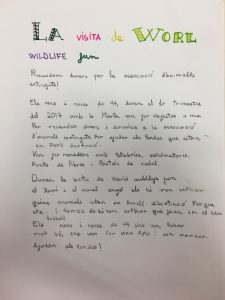 LA visita de WORL
WILDLIFE fun
Recaudem diners per la associació d'animals
extingits!
Els nens i nenes de 4t, durant el 1r trimestre
del 2017 amb la Marta van fer objectes a ma
Per recaudar diners i donarlos a la associació
d'animals extingits per ajudar els llandas que estan
en Perill d'extinció
Van fer moneders amb tetabriks,
Punts de llibre i Postals de nadal.
Durant la visita de World wildlife fun
el Xavi i el miquel angel els hi van explicar
quins animals estan en Perill d'extinció Perque
etc. i també els hi van explicar que fan en el seu
treball
Els nens i nenes de 4t s'ho van Pasar
molt bé, ens vem fer una foto i van marxar.
Ajudem als Pandas!